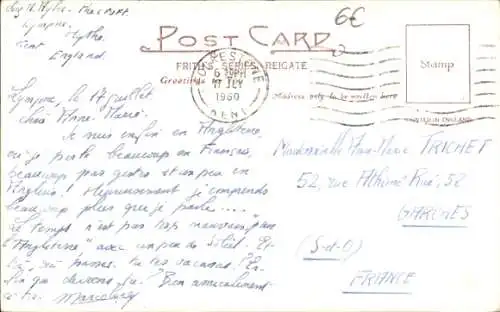 6€
Lympne, Hythe
Kent
England.
POST CARD
FRITH'S SERIES, REIGATE
Greetings
Address only to be written here
Stamp
FOLKESTONE
6 PM
17 JLY
1960
KENT
Lympne, le 17 juillet
chère Anne-Marie.
Je suis enfin en Angleterre,
où je parle beaucoup en Français,
beaucoup par gestes et un peu en
Anglais! Heureusement je comprends
beaucoup plus que je parle....
Le temps n'est pas trop mauvais pour
l'"Angleterre" avec un peu de Soleil. Et
toi, où passes-tu tes vacances? En-
fin que deviens-tu? Bien amicalement
à toi.
Mademoiselle Anne-Marie TRICHET
52, rue Athime Rué, 52
GARCHES
(S-et-O)
FRANCE